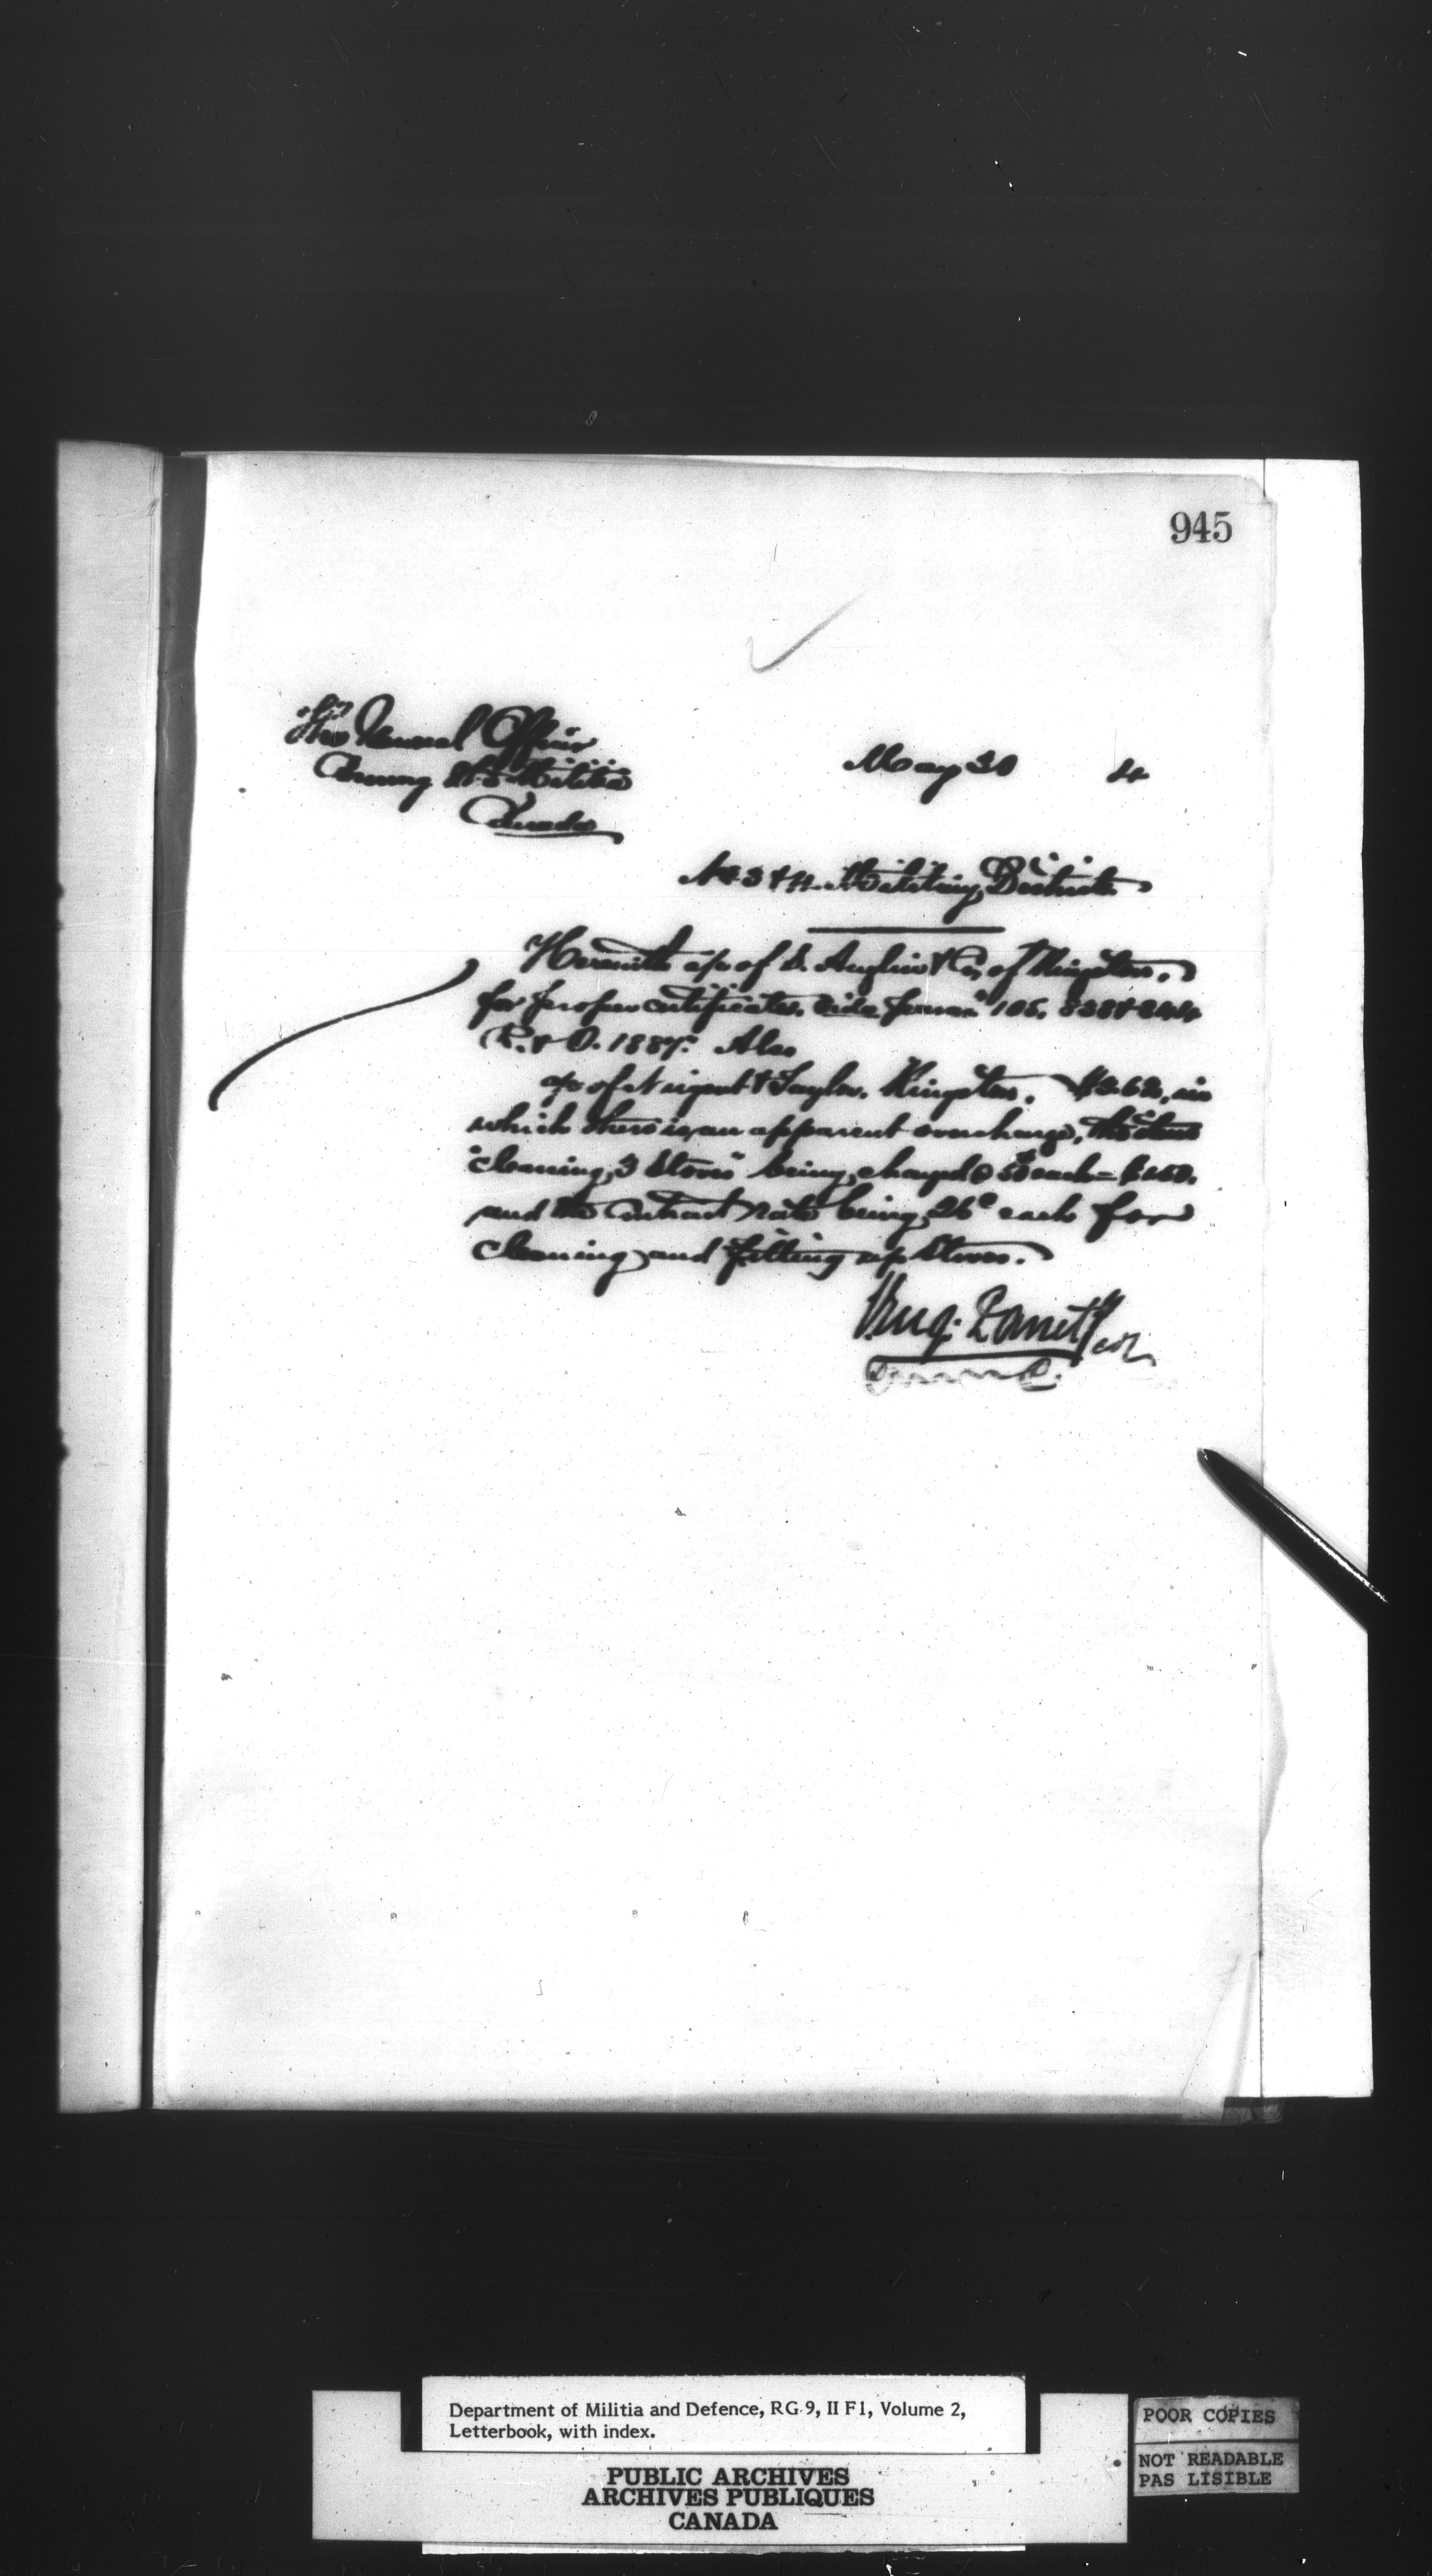 945
The General Officer
Commg the Militia
Canada
May 30 4
No 3 & 4. Military Districts
Herewith a/c of S. Anglin & Co, of Kingston,
for proper certificates. vide paras 105, 838 &
R. & O. 1887. Also
a/c of Nugent & Taylor, Kingston. in
which there is an apparent overcharge, the item
"cleaning 3 Stoves" being charged @ 50 each =
and the contract rate being each for
cleaning and fitting up Stoves.
Panet Col
Department of Militia and Defence, RG 9, II F1, Volume 2,
Letterbook, with index.
PUBLIC ARCHIVES
ARCHIVES PUBLIQUES
CANADA
POOR COPIES
NOT READABLE
PAS LISIBLE